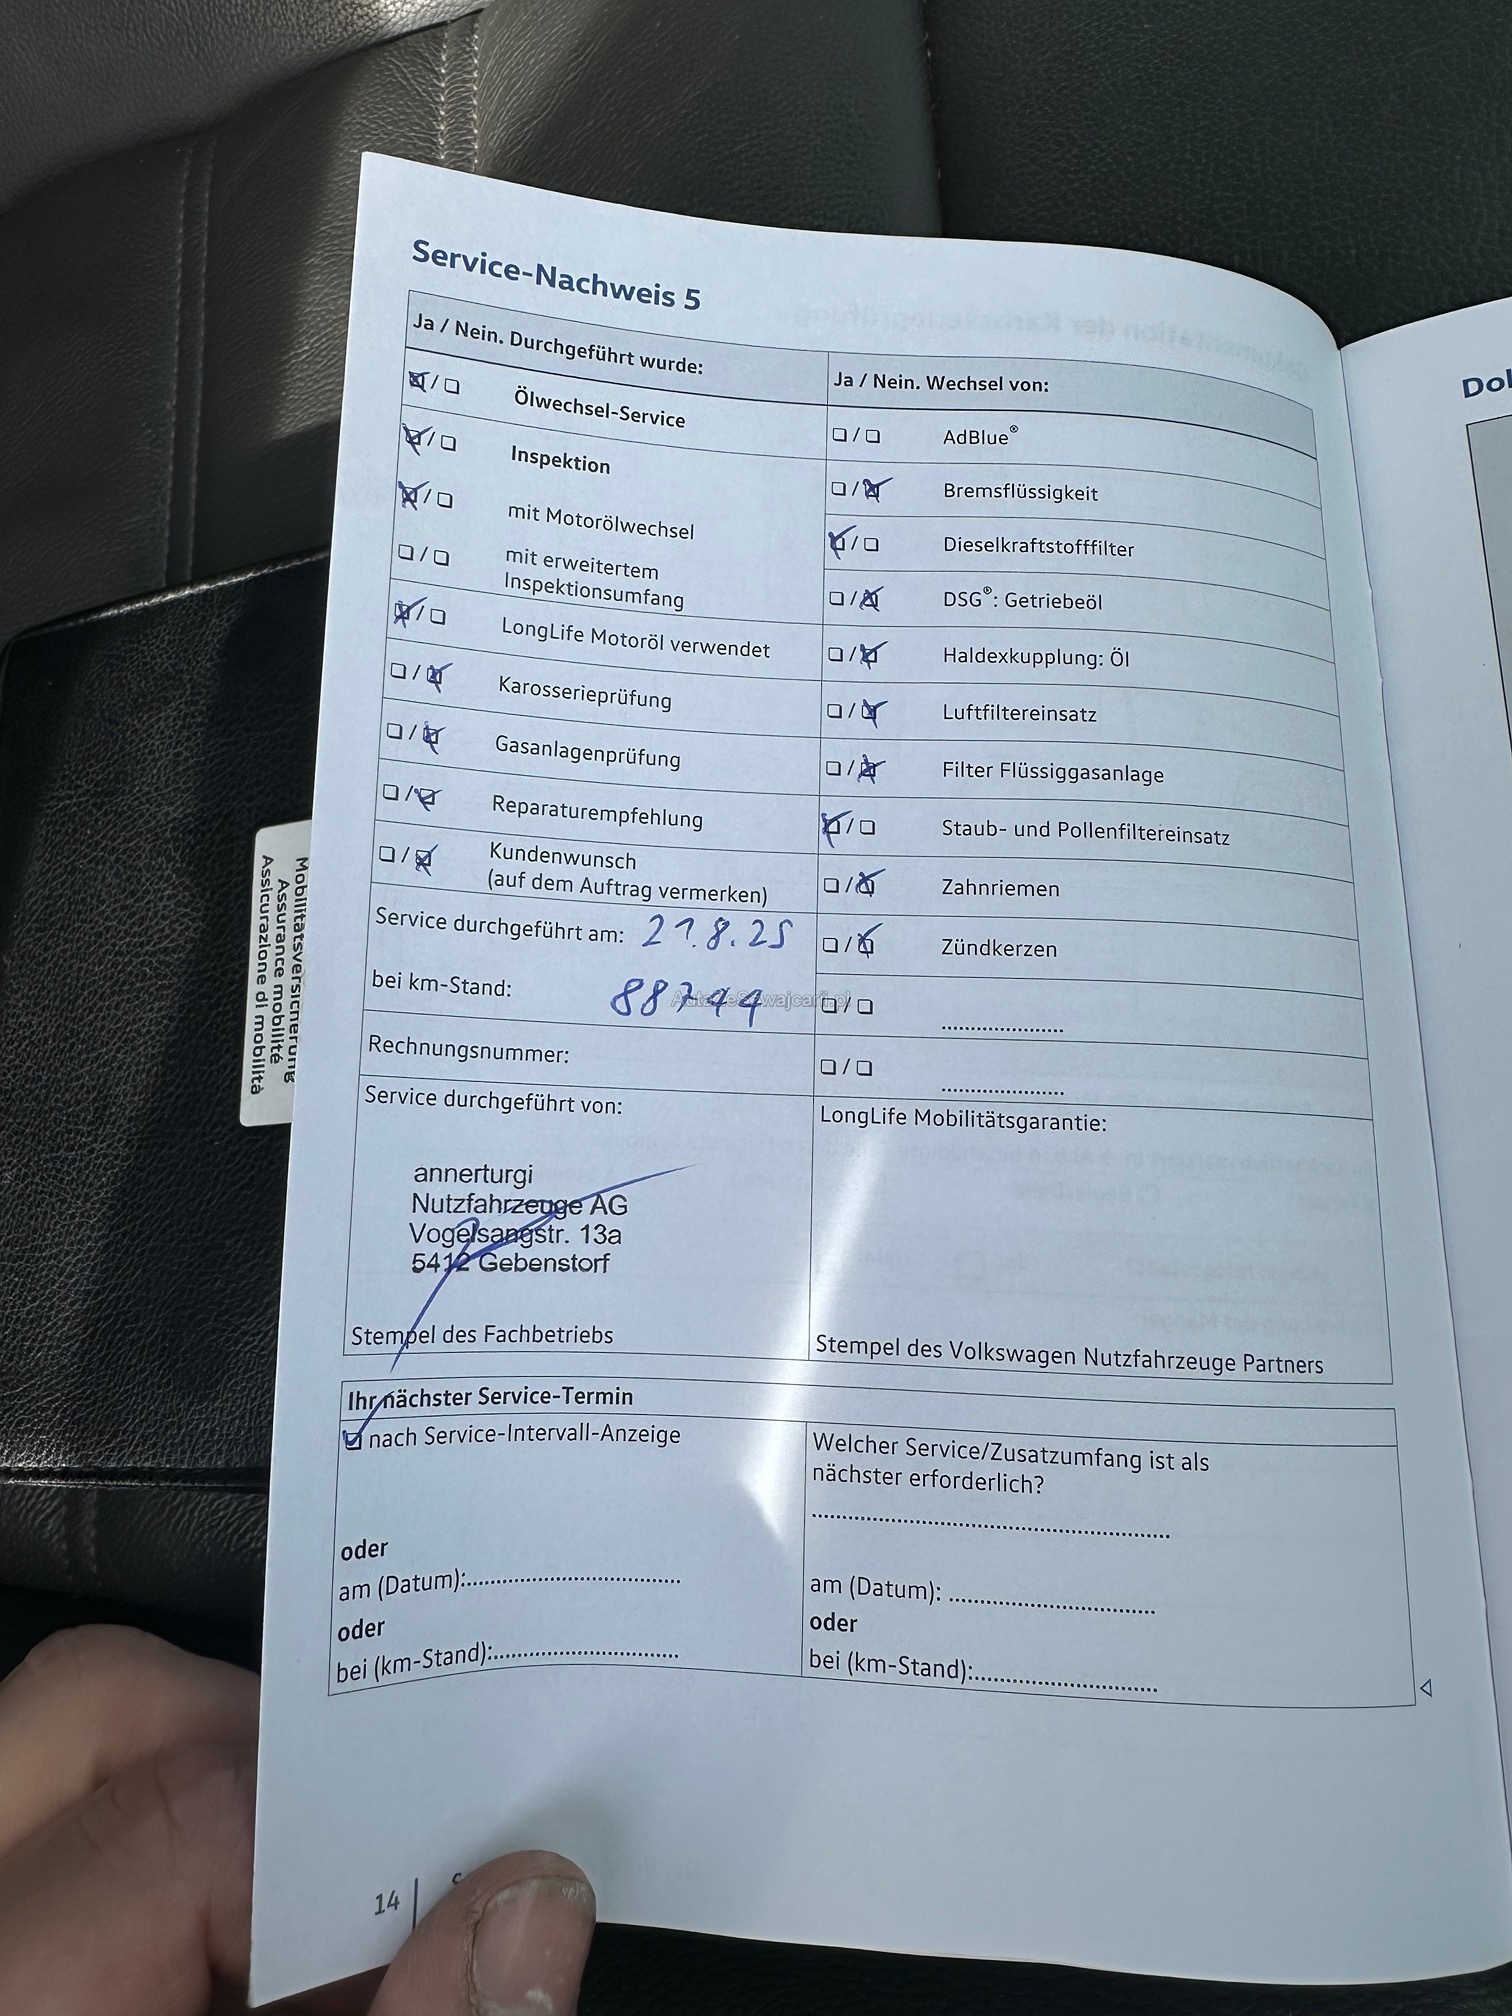 Service-Nachweis 5
Ja / Nein. Durchgeführt wurde:
Ölwechsel-Service
Inspektion
mit Motorölwechsel
mit erweitertem
Inspektionsumfang
LongLife Motoröl verwendet
Karosserieprüfung
Gasanlagenprüfung
Reparaturempfehlung
Kundenwunsch
(auf dem Auftrag vermerken)
Service durchgeführt am: 21.8.25
bei km-Stand: 88744
Rechnungsnummer:
Service durchgeführt von:
annerturgi
Nutzfahrzeuge AG
Vogelsangstr. 13a
5412 Gebenstorf
Stempel des Fachbetriebs
Ja / Nein. Wechsel von:
AdBlue®
Bremsflüssigkeit
Dieselkraftstofffilter
DSG®: Getriebeöl
Haldexkupplung: Öl
Luftfiltereinsatz
Filter Flüssiggasanlage
Staub- und Pollenfiltereinsatz
Zahnriemen
Zündkerzen
LongLife Mobilitätsgarantie:
Stempel des Volkswagen Nutzfahrzeuge Partners
Ihr nächster Service-Termin
nach Service-Intervall-Anzeige
oder
am (Datum):
oder
bei (km-Stand):
Welcher Service/Zusatzumfang ist als
nächster erforderlich?
am (Datum):
oder
bei (km-Stand):
14
Mobilitätsversicherung
Assurance mobilité
Assicurazione di mobilità